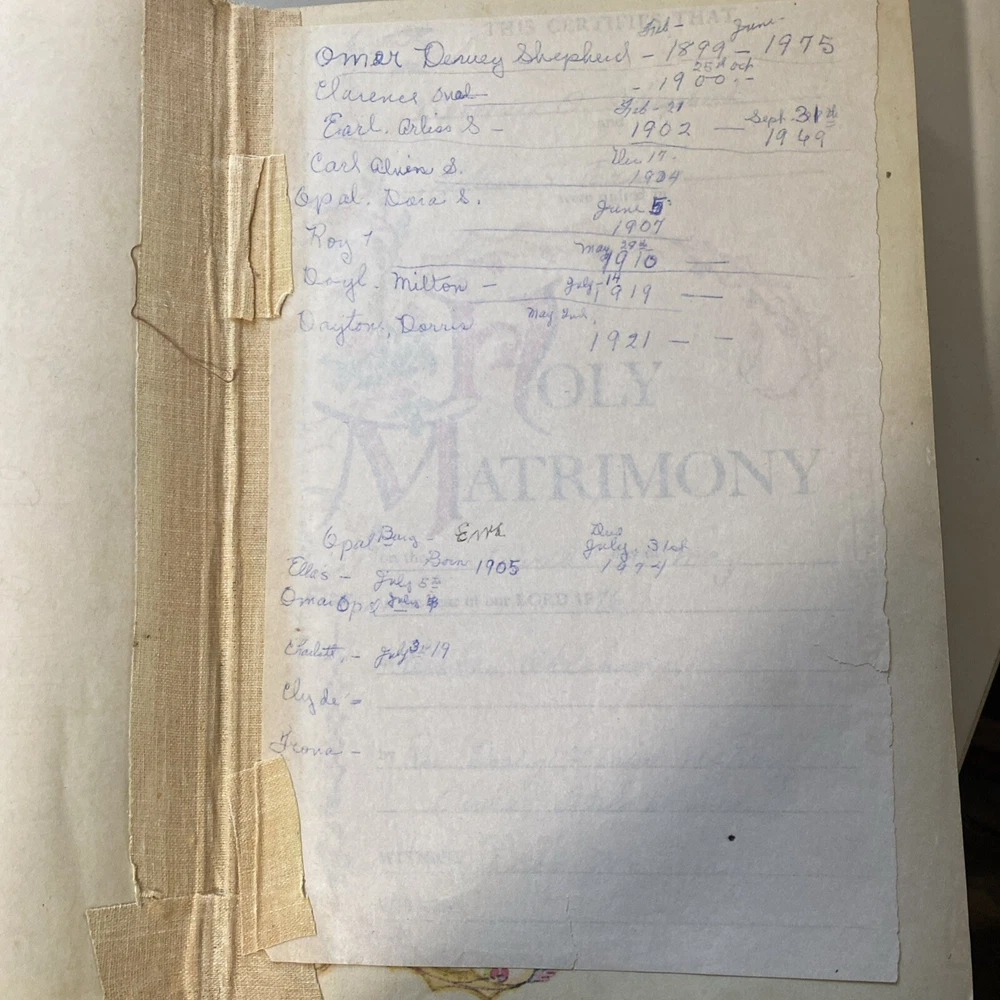 THIS CERTIFIES THAT
Feb - June -
Omar Dewey Shepherd - 1899 - 1975
25th oct
Clarence - 1900 -
Feb - 21 Sept 31
Earl. Arliss S - 1902 - 1949
Dec 17.
Carl Alvin S. 1904
Opal. Dora S. June 5
1907
Roy May 29th
1910
Doyl. Milton - July - 14
1919
Dayton, Dorris May 2nd,
1921 - -
HOLY
MATRIMONY
Opal - Died
July 31st
Ella's - Born 1905 1974
July 5th
Omar July
of our LORD 19
Charlott, - July 3 19
Clyde -
- 
WITNESS